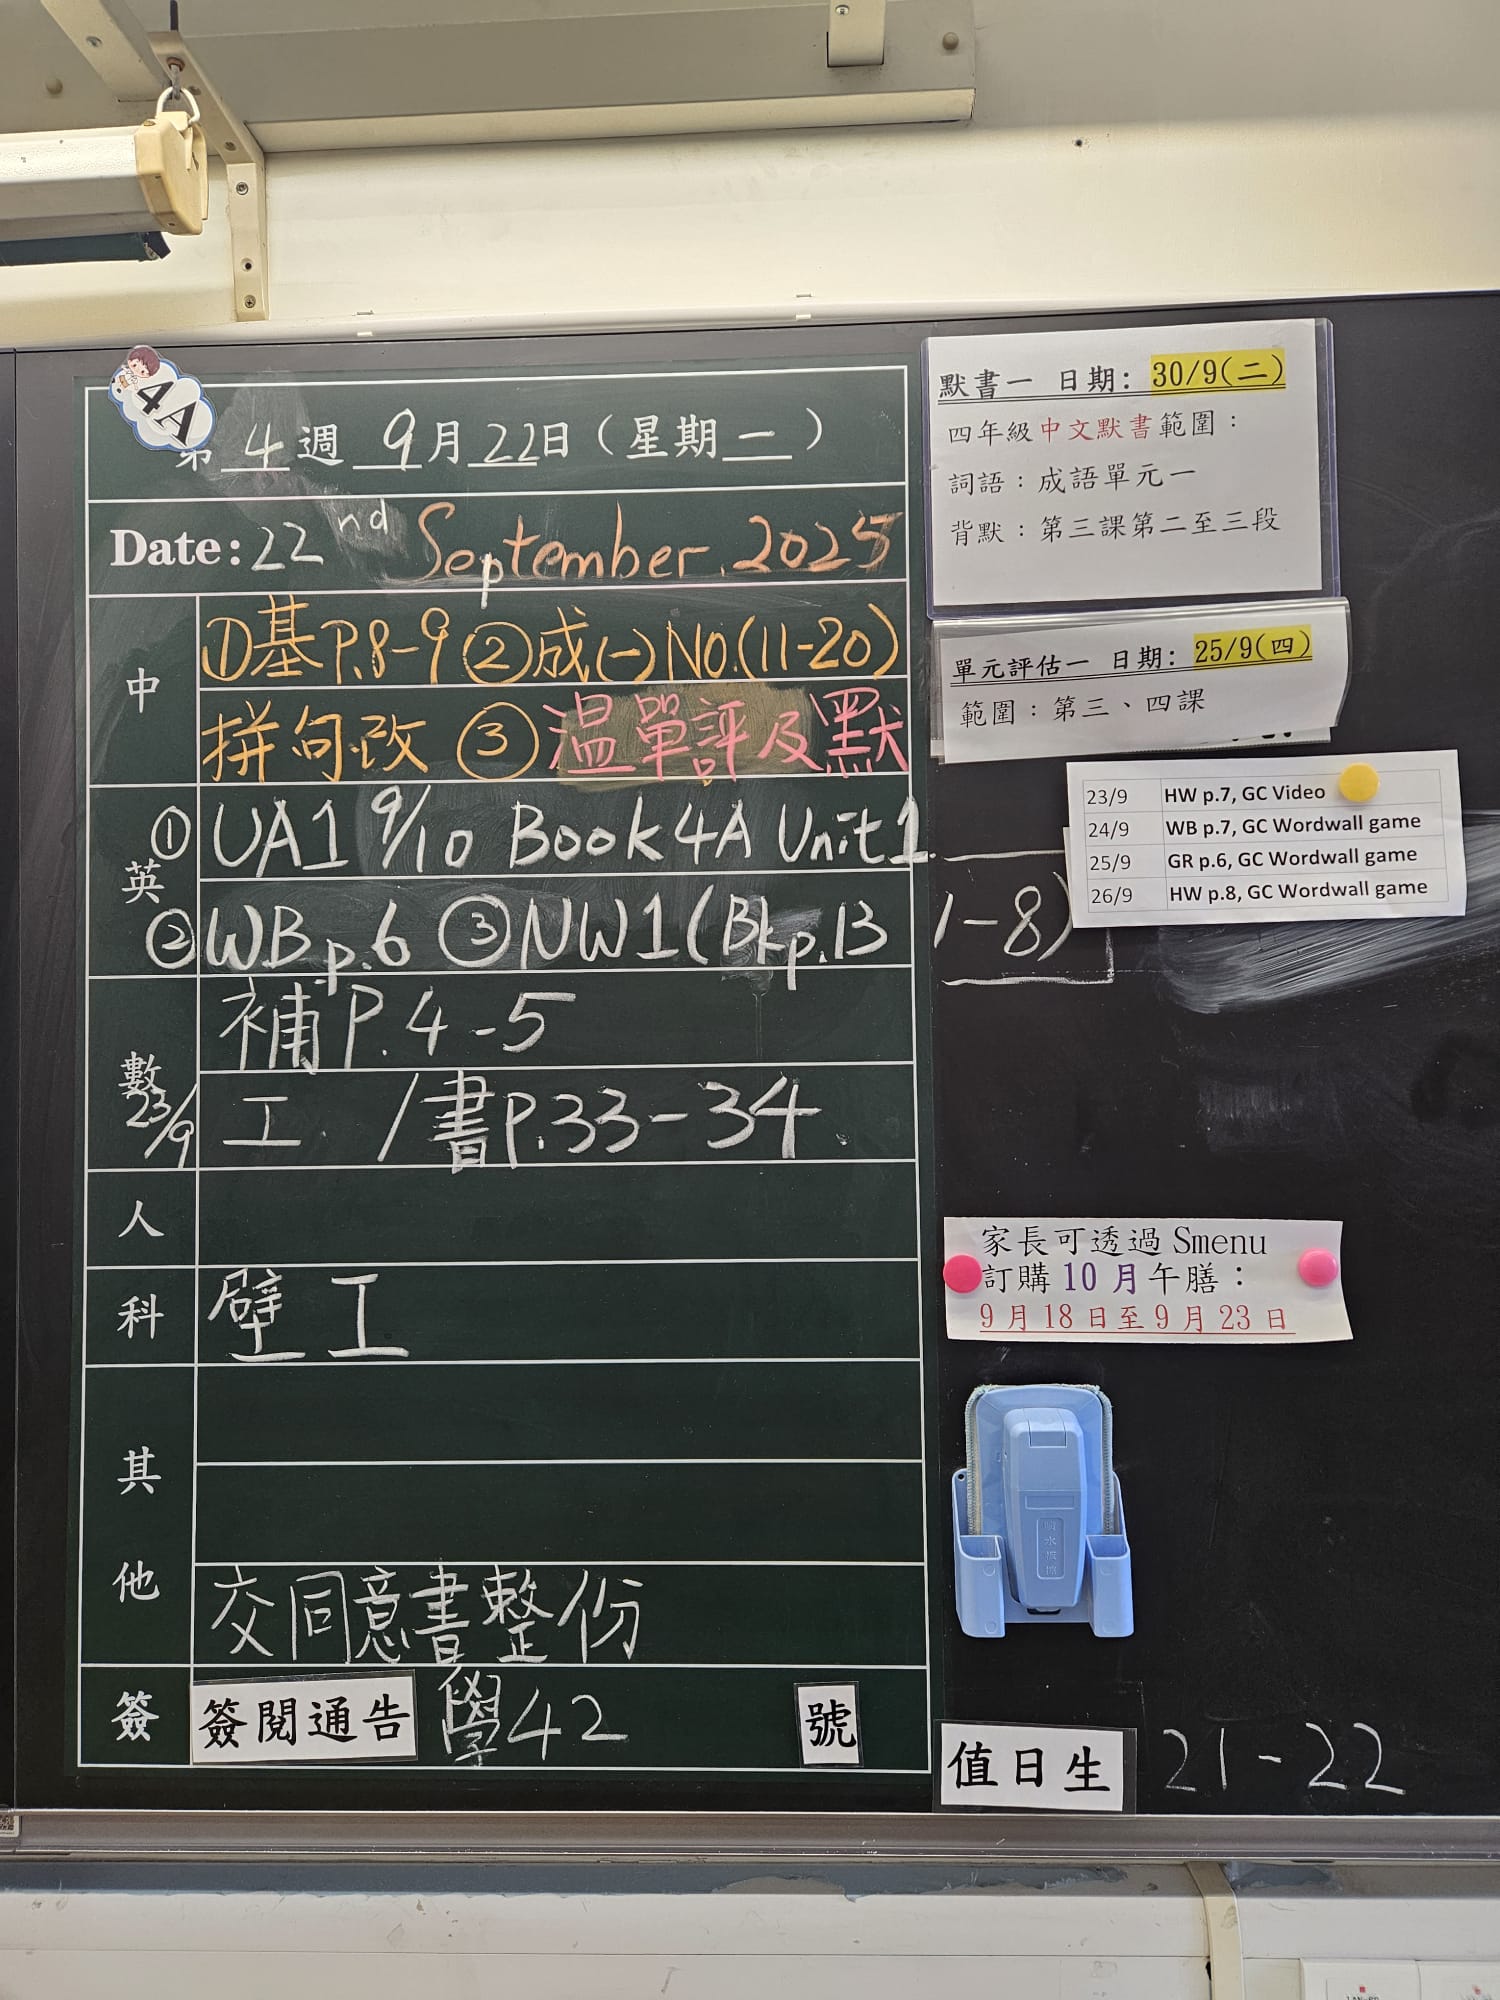 4A
第 4 週 9 月 22 日 ( 星期 一 )
Date: 22nd September, 2025
中
①基P.8-9 ②成(一)NO.(11-20)
拼句改 ③溫單評及默
英
①UA1 9/10 Book 4A Unit 1
②WB p.6 ③NW1(Bk p.13 1-8)
數
補P.4-5
23/9
工 / 書P.33-34
人
科
壁工
其他
交同意書整份
簽
簽閱通告 學42 號
默書一 日期: 30/9(二)
四年級中文默書範圍:
詞語:成語單元一
背默:第三課第二至三段
單元評估一 日期: 25/9(四)
範圍:第三、四課
23/9 HW p.7, GC Video
24/9 WB p.7, GC Wordwall game
25/9 GR p.6, GC Wordwall game
26/9 HW p.8, GC Wordwall game
家長可透過 Smenu
訂購 10 月午膳:
9 月 18 日至 9 月 23 日
值日生 21-22